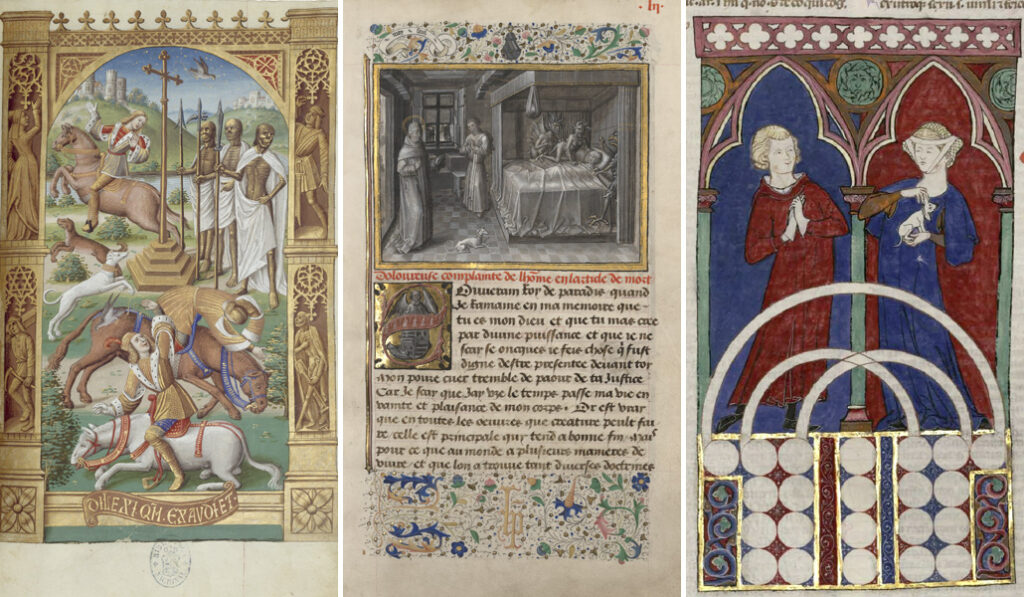 DILEXI QM EXAVDIET
Doloureuse complainte de lhõme en larticle de mort
Ouuerain roy de paradis quand
Je ramaine en ma memoire que
tu es mon dieu et que tu mas cree
par diuine puissance et que ie ne
scay se oncques ie feis chose q̃ fust
digne destre presentee deuant toy
mon poure cuer tremble de paour de ta Justice
Car Je scay que Jay vze le temps passe ma vie en
vanite et plaisance de mon corps. Or est vray
que en toutes les oeuures que creature peult fai
re celle est principale qui tend a bonne fin.
pour ce que au monde a plusieurs manieres de
viure et que lon a trouue tant diuerses doctrines